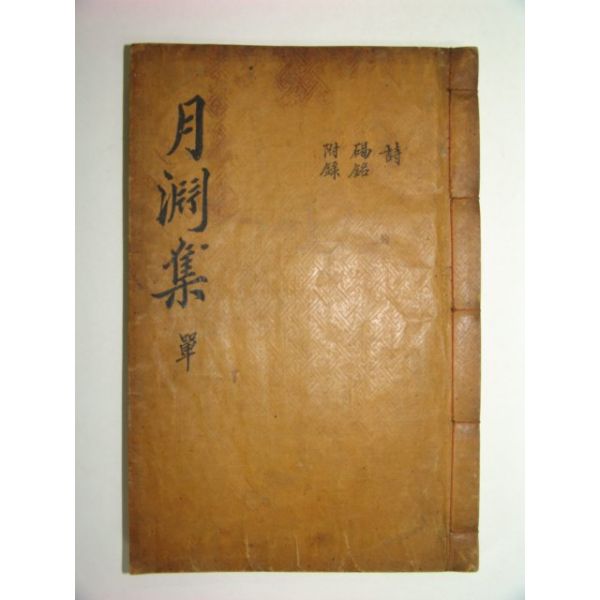 詩
碣銘
附錄
月淵集 單